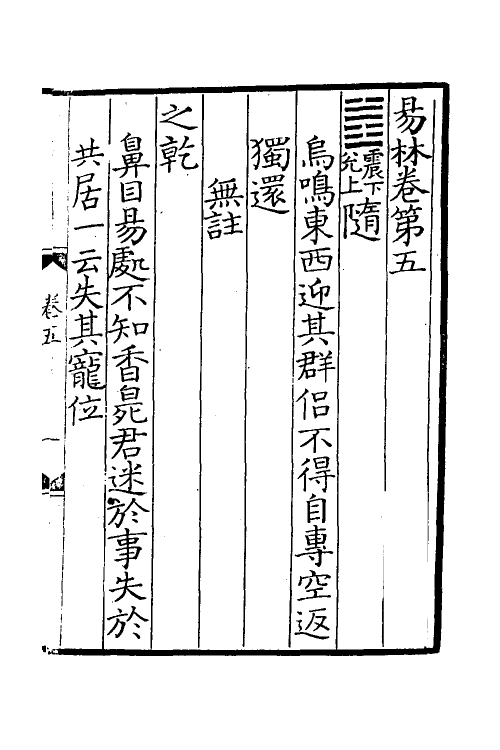 易林卷第五
䷐震下兌上隨
烏鳴東西迎其群侶不得自專空返
獨還
無註
之乾
鼻目易處不知香臰君迷於事失於
共居一云失其寵位
卷五
一